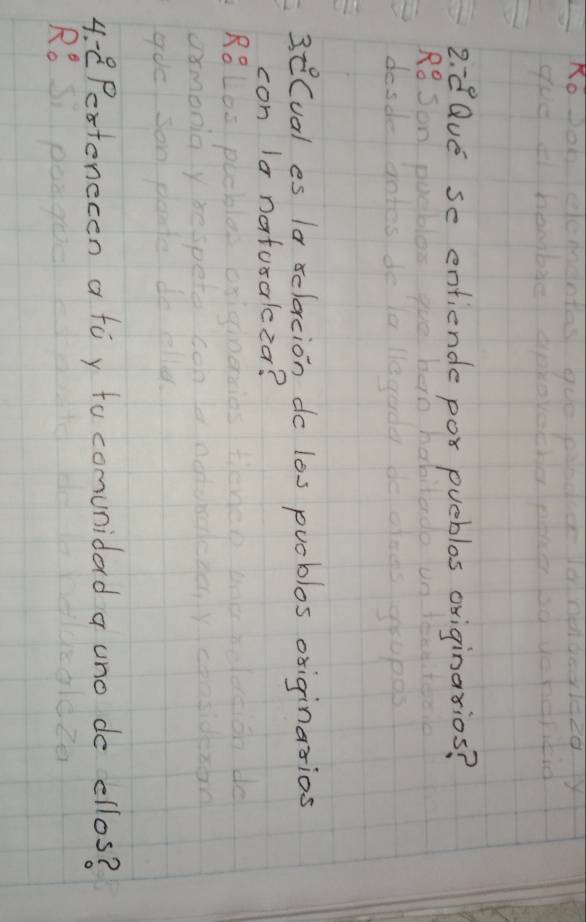 R: Son elementos que produce la naturaleza y
que el hombre aprovecha para su beneficio
2.-¿Qué se entiende por pueblos originarios?
R: Son pueblos que han habitado un territorio
desde antes de la llegada de otros grupos
3¿Cual es la relación de los pueblos originarios
con la naturaleza?
R: Los pueblos originarios tienen una relación de
armonia y respeto con la naturaleza, y consideran
que son parte de ella.
4.-¿Pertenecen a tú y tu comunidad a uno de ellos?
R: Si porque es parte de la naturaleza